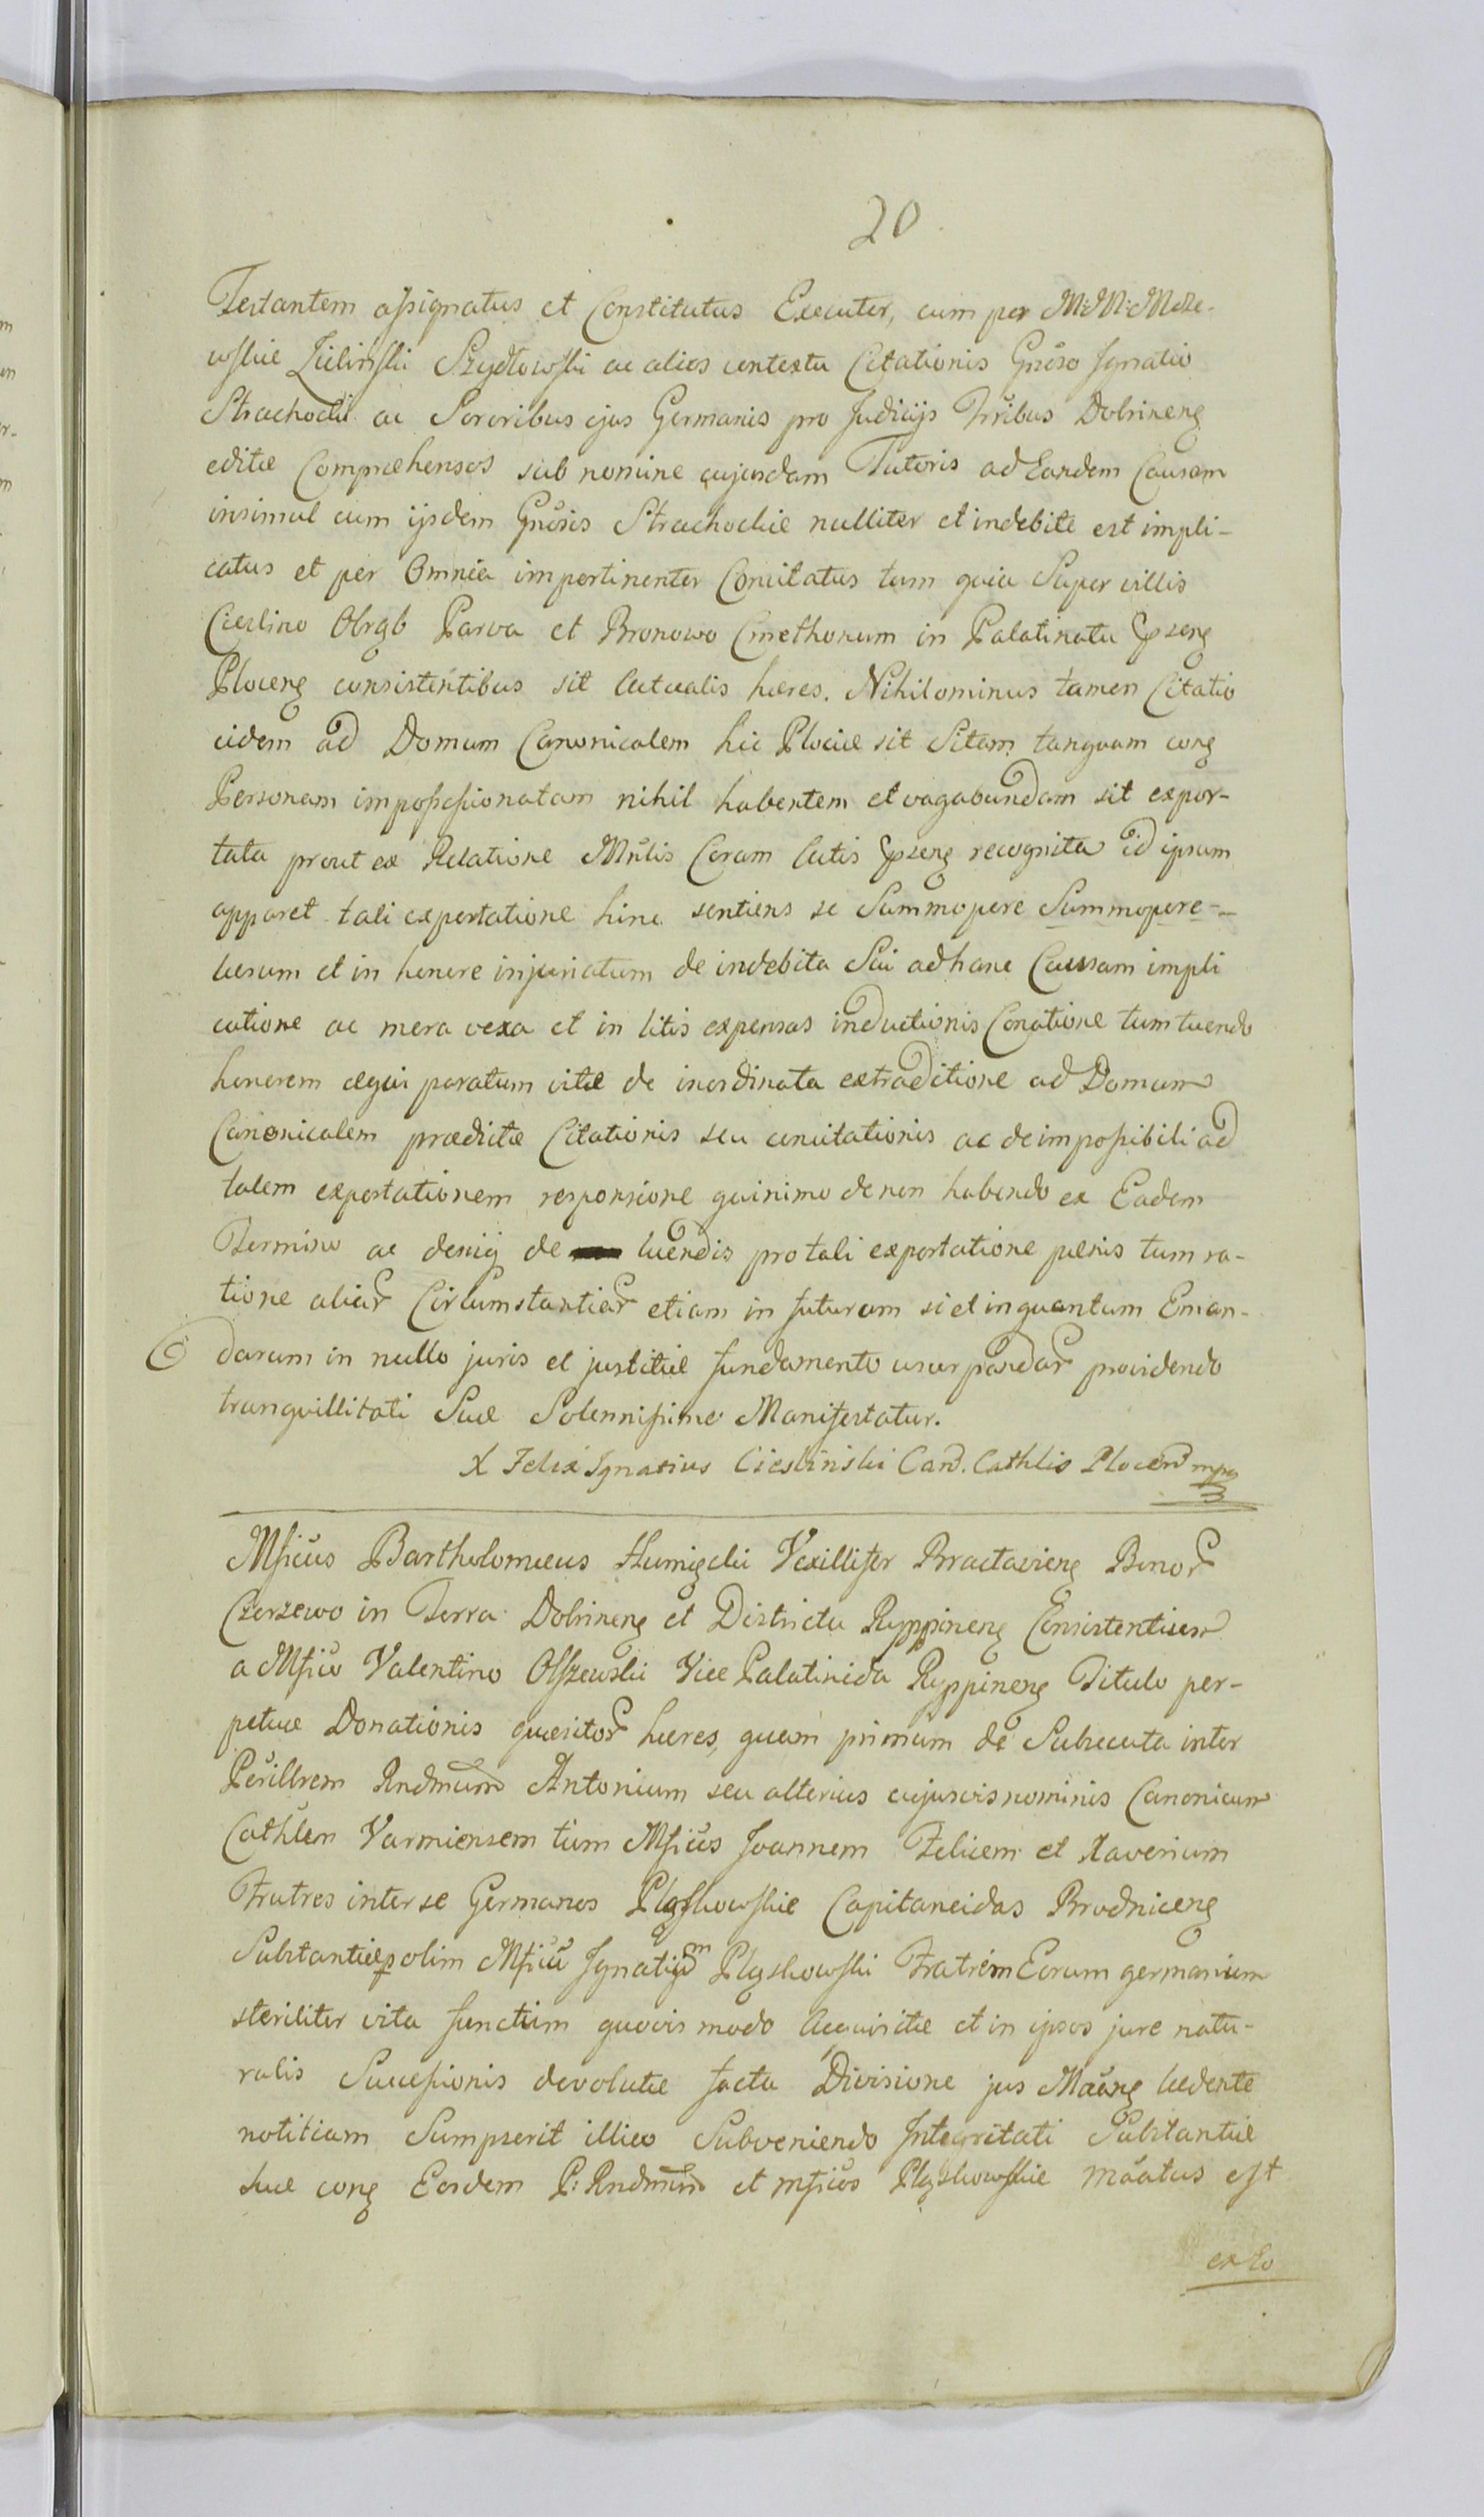 20
Testantem assignatus et Constitutus Executor, cum per M: M: Moze-
wskie Zielinski Szydłowski ac alios contextu Citationis Gnōso Ignatio
Strachocki ac Sororibus ejus Germanis pro Judicijs Trribus Dobrineng
editæ Comprehensos sub nomine cujusdam Tutoris ad Eandem Causam
insimul cum ijsdem Gnōsis Strachockie nulliter et indebite est impli-
catus et per Omnia impertinenter Concitatus tum quia Super villis
Cieslino Obrąb Parva et Bronowo Cmethonum in Palatinatu Ipseng
Ploceng consistentibus sit actualis hæres. Nihilominus tamen Citatio
eidem ad Domum Canonicalem hic Plociæ sit Sitam tanquam cong
Personam impossessionatam nihil habentem et vagabundam sit expor-
tata prout ex Relatione Mnlis Coram Actis Ipseng recognita id ipsum
apparet tali exportatione hinc sentiens se Summopere Summopere
læsum et in honore injuriatum de indebita Sui ad hanc Causam impli
catione ac mera vexa et in litis expensas inductionis Conatione tum tuendo
honorem æqui paratum vitæ de inordinata extraditione ad Domum
Canonicalem prædictæ Citationis seu concitationis ac de impossibili ad
talem exportationem responsione quinimo de non habendo ex Eadem
Termino ac deniq de luendis pro tali exportatione pœnis tum ra-
tione aliar Circumstantiar etiam in futurum si et inquantum Eman-
darum in nullo juris et justitiæ fundamento usurpandar providendo
tranquillitati Suæ Solennissime Manifestatur.
X Felix Ignatius Cieslinski Can. Cathlis Plocen mpp
Mficus Bartholomæus Humięcki Vexillifer Bractavieng Bonor
Czerzewo in Terra Dobrineng et District Ryppineng Consistentium
a Mfico Valentino Olszewski Vice Palatinida Ryppineng Titulo per-
petuæ Donationis quæsitor hæres, quam primum de Subsecuta inter
Perillrem Rndmum Antonium seu alterius cujusvis nominis Canonicum
Cathlem Varmiensem tum Mficos Joannem Felicem et Xaverium
Fratres inter se Germanos Pląskowskie Capitaneidas Brodniceng
Substantiæ p olim Mficū Ignatium Pląskowski Fratrem Eorum germanum
steriliter vita functum quovis modo Acquisitæ et in ipsos jure natu-
ralis Successionis devolutæ facta Divisione jus Māūng lædente
notitiam Sumpserit illico Subveniendo Integritati Substantiæ
suæ cong Eosdem P: Rndmum et mficos Pląskowskie māatus est
ex Eo